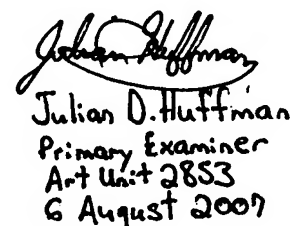 Julian Huffman
Julian D. Huffman
Primary Examiner
Art Unit 2853
6 August 2007